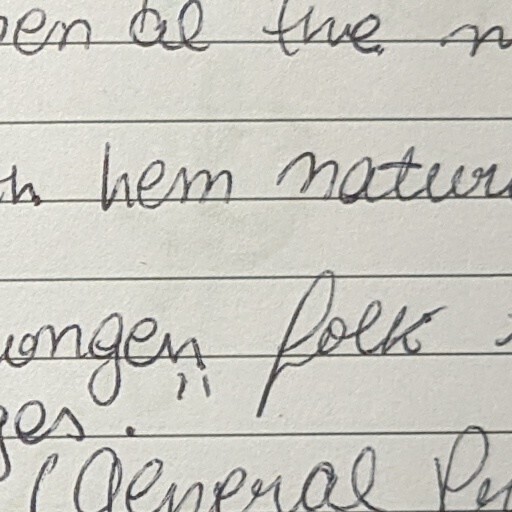 pen al the n
h hem natur
longen folk
ges.
(General Pr